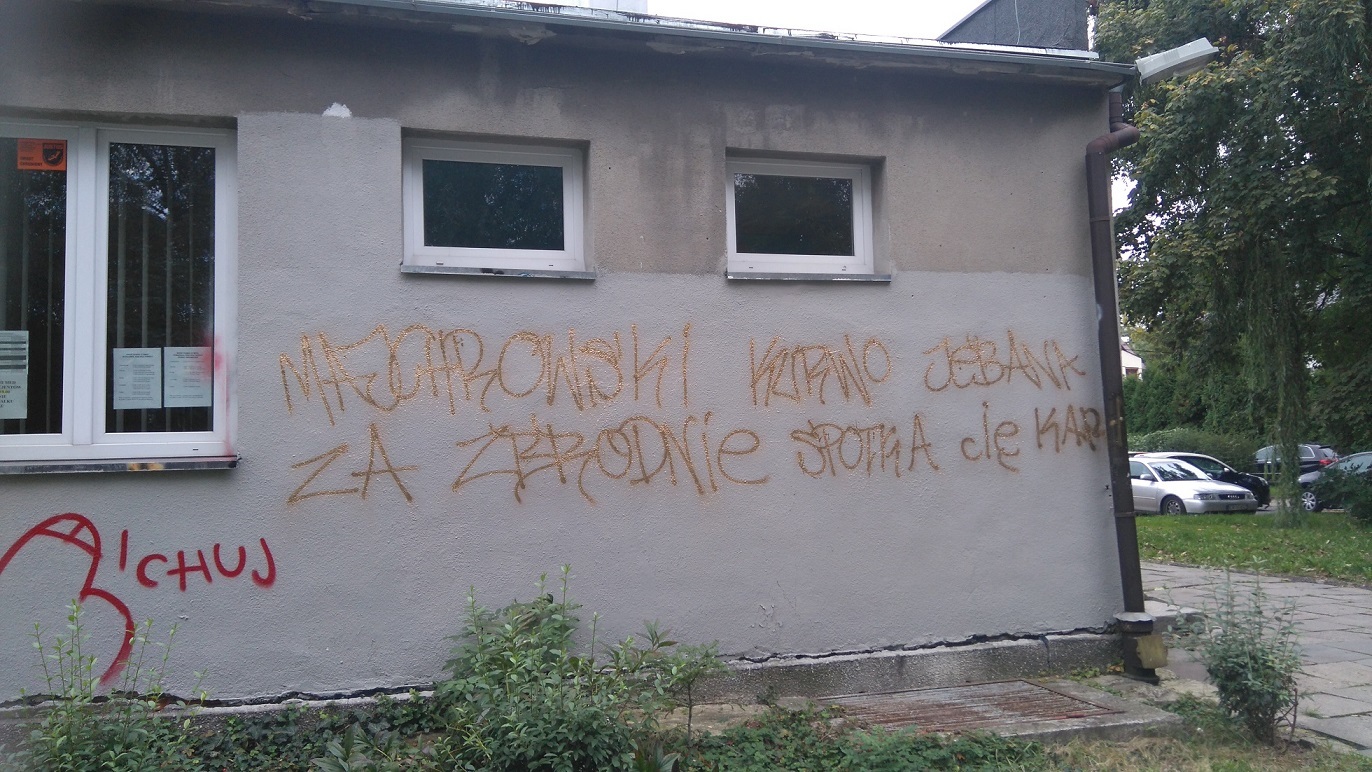 MAJCHROWSKI KURWO JEBANA
ZA ZBRODNIE SPOTKA CIĘ KARA
I CHUJ